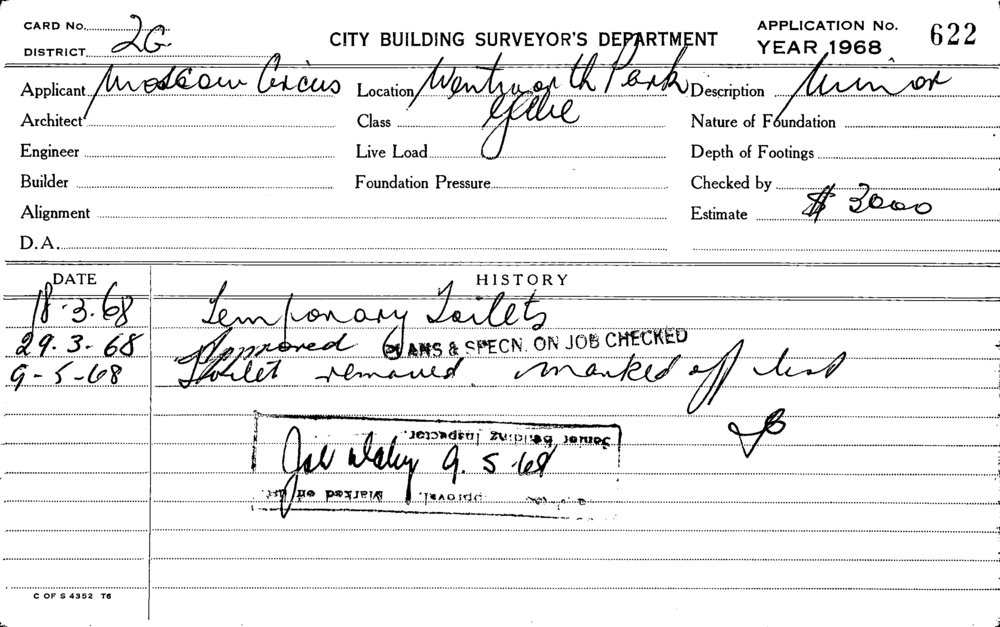 CARD No.
DISTRICT 2G.
CITY BUILDING SURVEYOR'S DEPARTMENT
APPLICATION No. 622
YEAR 1968
Applicant Moscow Circus Location Wentworth Park Description Minor
Architect Class Glebe Nature of Foundation
Engineer Live Load Depth of Footings
Builder Foundation Pressure Checked by
Alignment Estimate $ 3000
D.A.
DATE HISTORY
18-3-68 Temporary Toilets
29-3-68 Approved PLANS & SPECN. ON JOB CHECKED
9-5-68 Toilet removed. marked off list
Senior Building Inspector.
9.5.68
Marked off list. approval.
C OF S 4352 T6